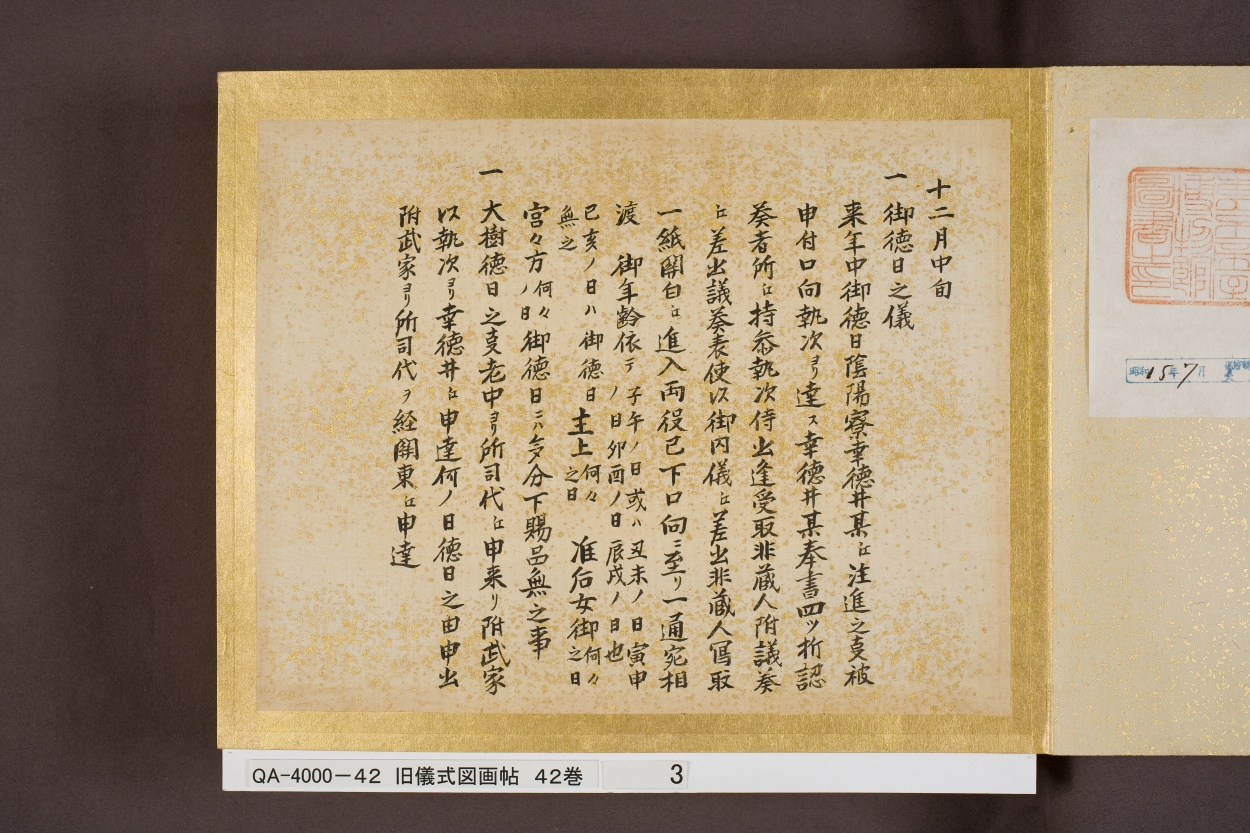 十二月中旬
一御徳日之儀
来年中御徳日陰陽寮幸徳井某江注進之支被
申付口向執次ヨリ達ス幸徳井某奉書四ツ折認
奏者所江持参執次侍出逢受取非蔵人附議奏
江差出議奏表使以御内儀江差出非蔵人写取
一紙関白江進入両役已下口向ニ至リ一通宛相
渡 御年齢依テ子午ノ日或ハ丑未ノ日寅申
ノ日卯酉ノ日辰戌ノ日也
已亥ノ日ハ御徳日 主上何々之日 准后女御何々之日
無之
宮々方何々ノ日御徳日ニハ多分下賜品無之事
一大樹徳日之支老中ヨリ所司代江申来リ附武家
以執次ヨリ幸徳井江申達何ノ日徳日之由申出
附武家ヨリ所司代ヲ経関東江申達
昭和15年7月
QA-4000-42 旧儀式図画帖 42巻 3